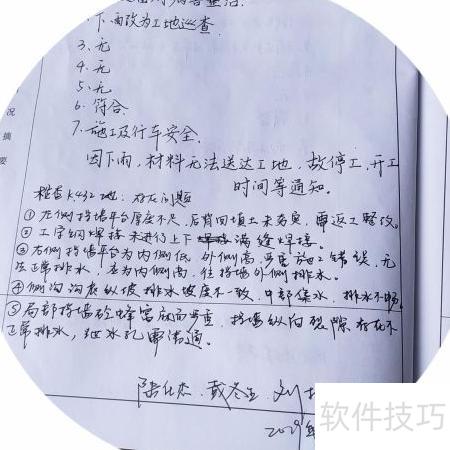 下雨改为工地巡查.
3、无
4、无
5、无
6、符合.
7、施工及行车安全.
因下雨,材料无法送达工地,故停工,开工
时间等通知。
检查K432地:存在问题
①左侧挡墙平台厚度不足,后背回填土未夯实,需返工整改。
②工字钢焊接未进行上下满缝焊接。
③右侧挡墙平台为内侧低外侧高,施工错误,无
法正常排水,应为内侧高,往挡墙外侧排水。
④侧沟沟底纵坡排水坡度不一致,中部集水,排水不畅。
⑤局部挡墙砼蜂窝麻面严重,挡墙纵向缝隙存在不
正常排水,泄水孔需清通。
况
摘
要
戴冬 刘
软件技巧